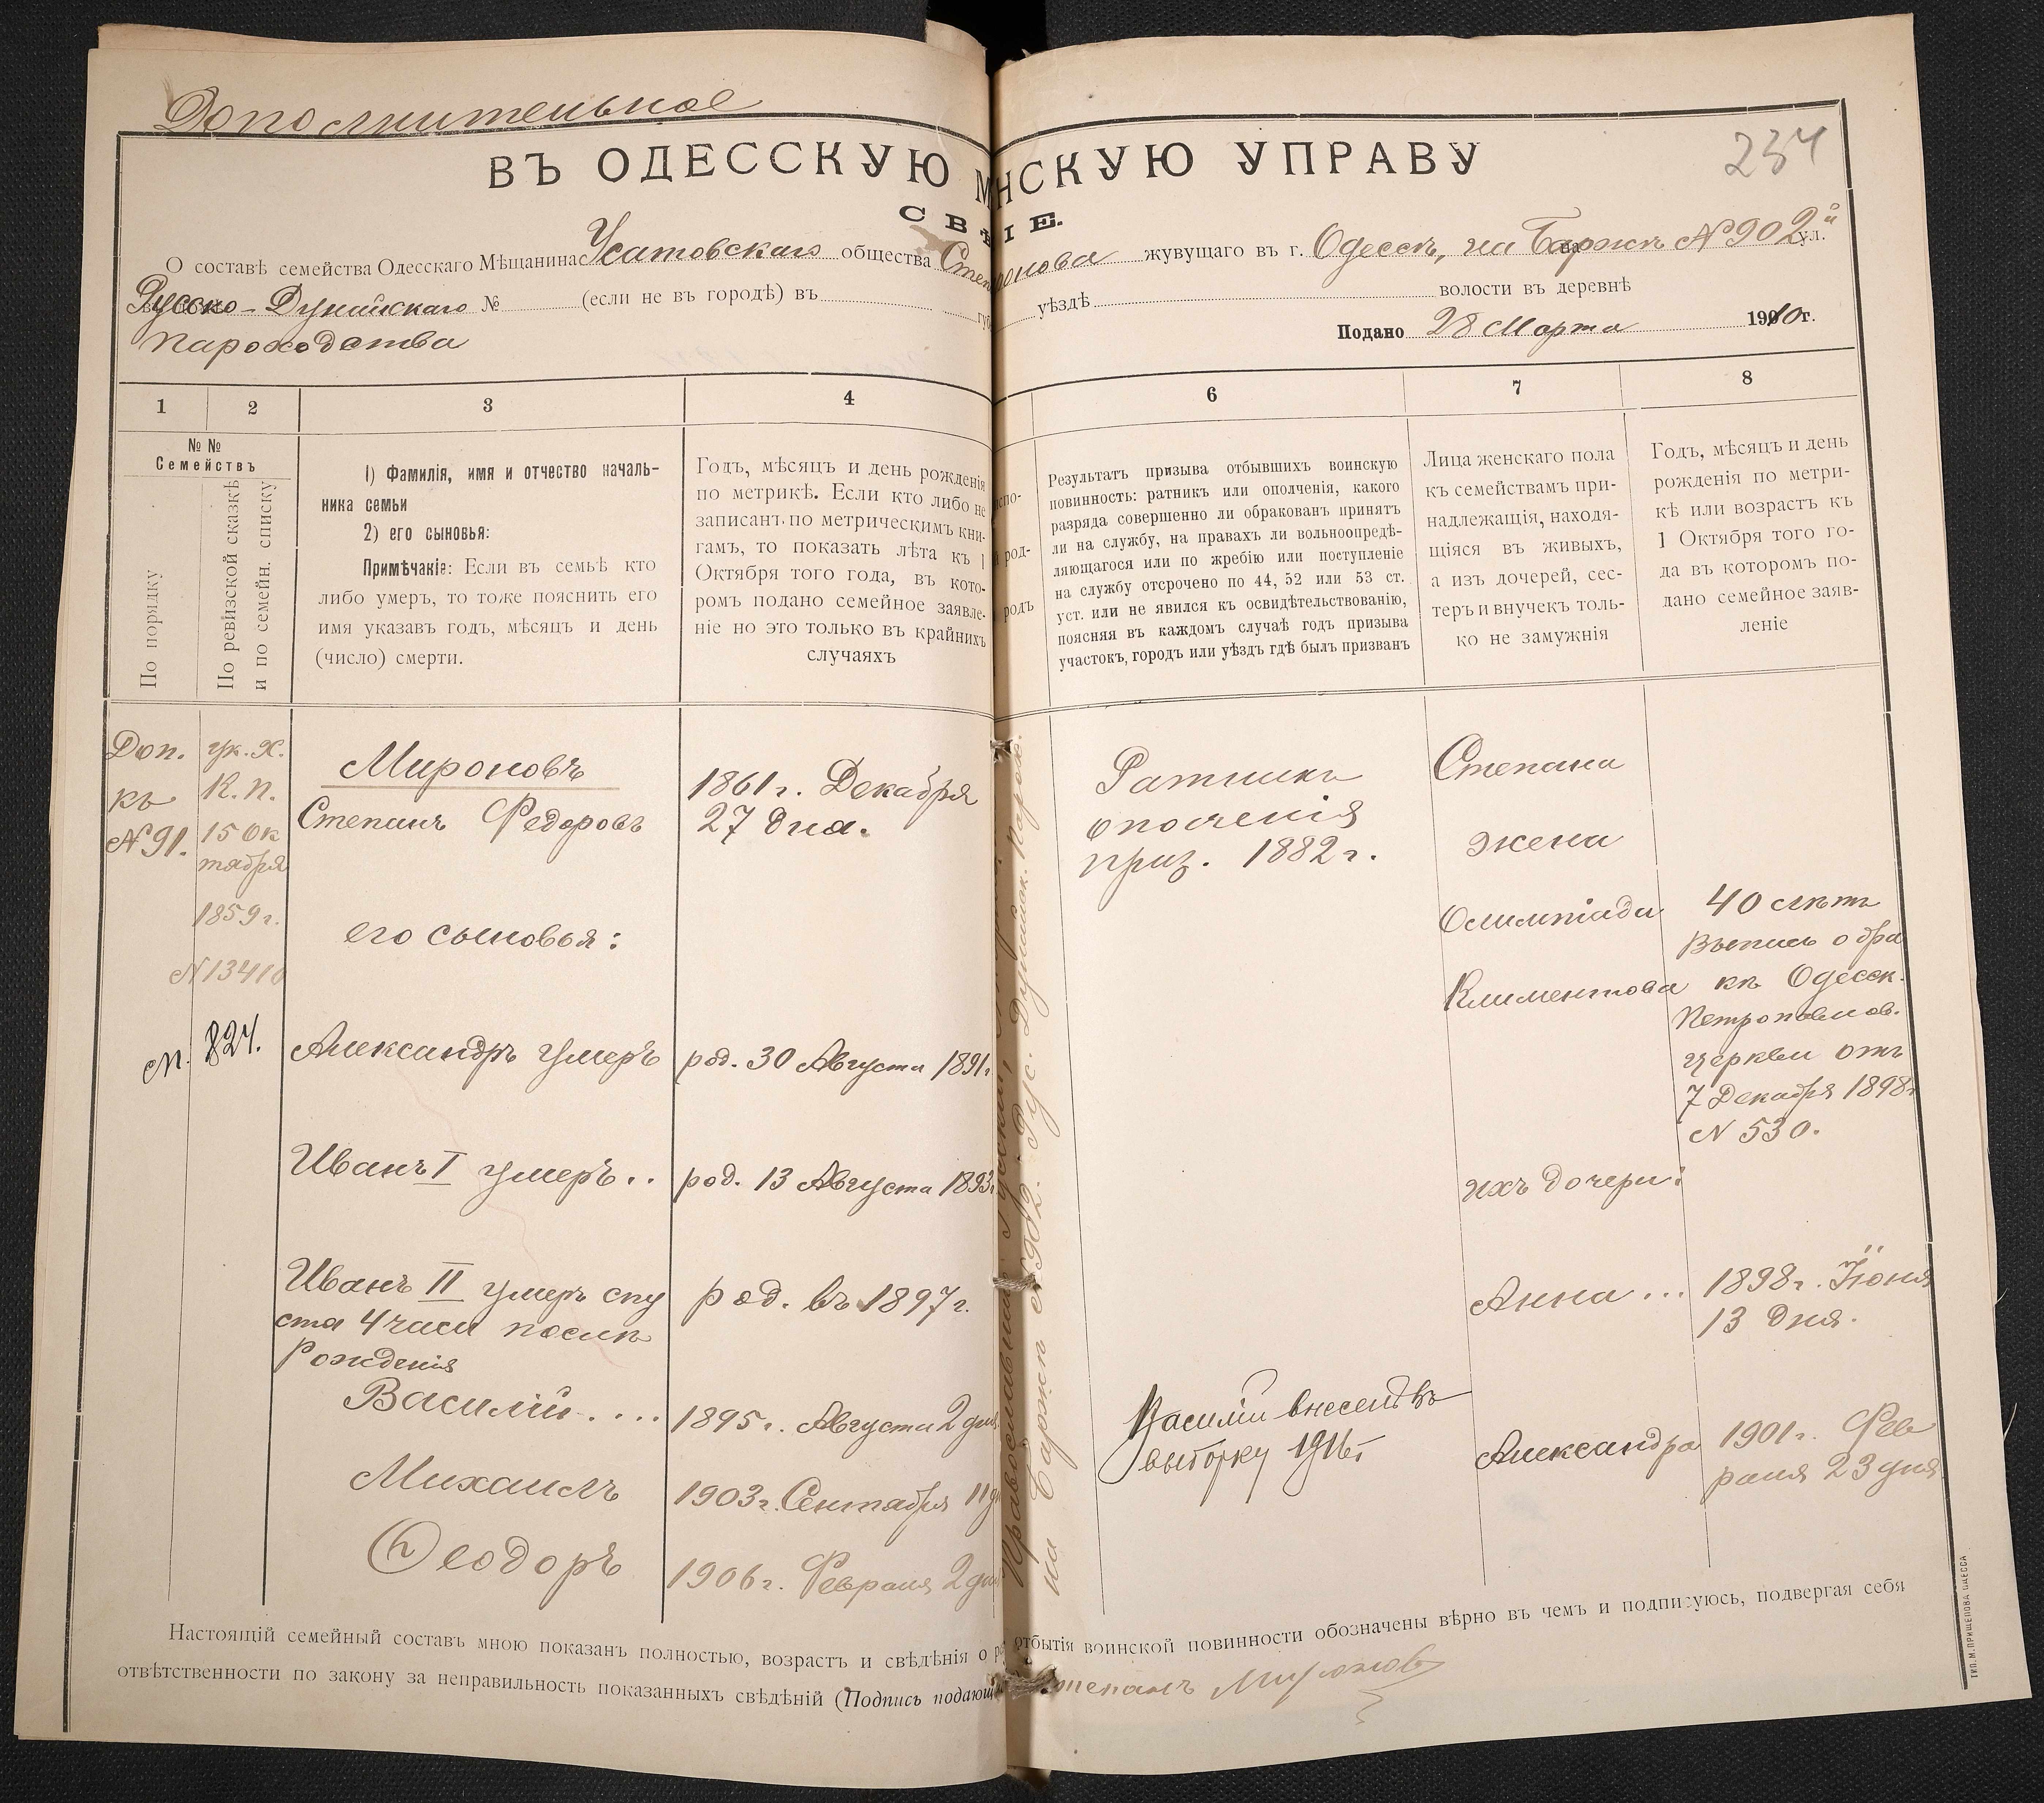 Дополнительное
ВЪ ОДЕССКУЮ М НСКУЮ УПРАВУ
234
СВѢ ІЕ.
О составѣ семейства Одесскаго Мѣщанина Усатовскаго общества Степ ронова жувущаго въ г. Одессѣ, на Баржѣ № 902й ул.
Русско-Дунайскаго № (если не въ городѣ) въ губ уѣздѣ волости въ деревнѣ
пароходства
Подано 28 Марта 1910 г.
1 2 3 4 6 7 8
№ №
Семействъ
По порядку
По ревизской сказкѣ
и по семейн. списку
1) Фамилія, имя и отчество началь-
ника семьи
2) его сыновья:
Примѣчакіе: Если въ семьѣ кто
либо умеръ, то тоже пояснить его
имя указавъ годъ, мѣсяцъ и день
(число) смерти.
Годъ, мѣсяцъ и день рожденія
по метрикѣ. Если кто либо не
записанъ по метрическимъ кни-
гамъ, то показать лѣта къ 1
Октября того года, въ кото-
ромъ подано семейное заявле-
ніе но это только въ крайнихъ
случаяхъ
испо-
й род-
родъ
Результатъ призыва отбывшихъ воинскую
повинность: ратникъ или ополченія, какого
разряда совершенно ли обракованъ принятъ
ли на службу, на правахъ ли вольноопредѣ-
ляющагося или по жребію или поступленіе
на службу отсрочено по 44, 52 или 53 ст.
уст. или не явился къ освидѣтельствованію,
поясняя въ каждомъ случаѣ годъ призыва
участокъ, городъ или уѣздъ гдѣ былъ призванъ
Лица женскаго пола
къ семействамъ при-
надлежащія, находя-
щіяся въ живыхъ,
а изъ дочерей, сес-
теръ и внучекъ толь-
ко не замужнія
Годъ, мѣсяцъ и день
рожденія по метри-
кѣ или возрастъ къ
1 Октября того го-
да въ которомъ по-
дано семейное заяв-
леніе
Доп.
къ
№ 91.
ук. Х.
К. П.
15 Ок
тября
1859 г.
№ 13410
М. 824.
Мироновъ
Степанъ Федоровъ
1861 г. Декабря
27 дня.
его сыновья:
Александръ умеръ
род. 30 Августа 1891 г
Иванъ I умеръ..
род. 13 Августа 1893 г
Иванъ II умеръ спу
ста 4 часа послѣ
рожденія
род. въ 1897 г.
Василій....
1895 г. Августа 2 дня
Михаилъ
1903 г. Сентября 11 д
Ѳеодоръ
1906 г. Февраля 2 дня
Православный
на Баржѣ № 902. Рус. Дунайск. Парох.
Ратникъ
ополченія
приз. 1882 г.
Василій внесенъ въ
выборку 1916 г
Степана
жена
Олимпіада
Климентова
40 лѣтъ
Выпись о бра
кѣ Одесск.
Петропавлов.
церкви отъ
7 Декабря 1898 г
№ 530.
ихъ дочери:
Анна...
1898 г. Іюня
13 дня.
Александра
1901 г. Фев
раля 23 дня
Настоящій семейный составъ мною показанъ полностью, возрастъ и свѣдѣнія о р отбытія воинской повинности обозначены вѣрно въ чемъ и подписуюсь, подвергая себя
отвѣтственности по закону за неправильность показанныхъ свѣдѣній (Подпись подающ Степанъ Мироновъ
ТИП. М. ПРИЩЕПОВА ОДЕССА